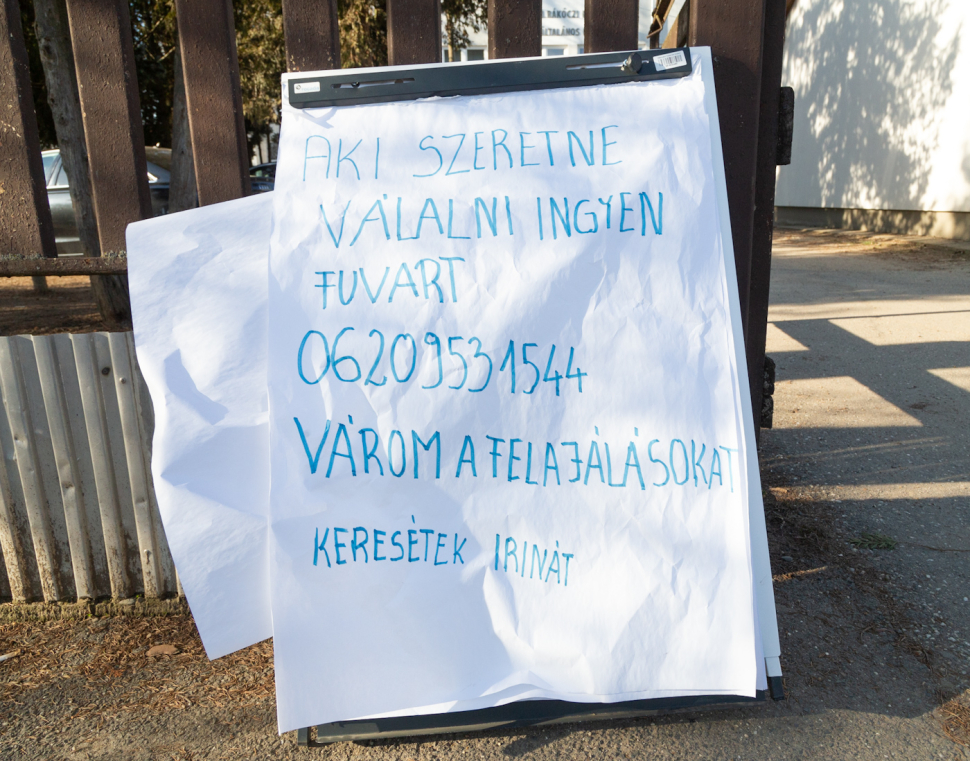 RÁKÓCZI
ÁLTALÁNOS
AKI SZERETNE
VÁLALNI INGYEN
FUVART
06209531544
VÁROM A FELAJÁLÁSOKAT
KERESÉTEK IRINÁT